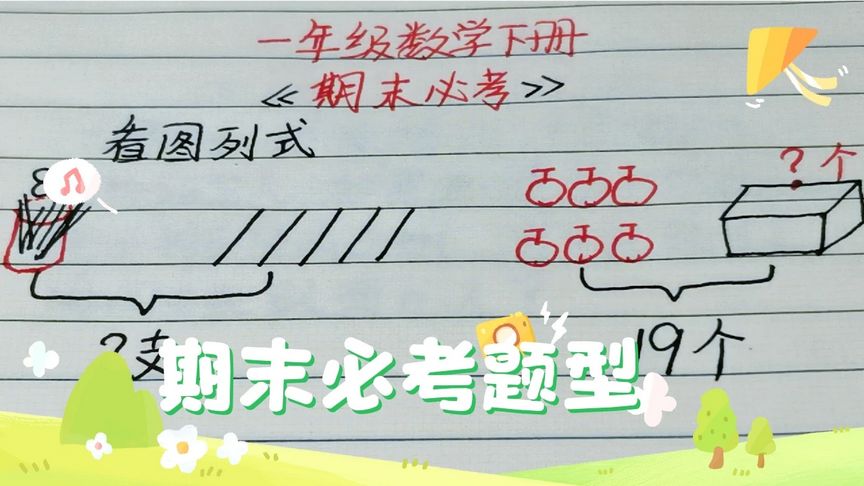 一年级数学下册
《期末必考》
看图列式
?个
?支
19个
期末必考题型